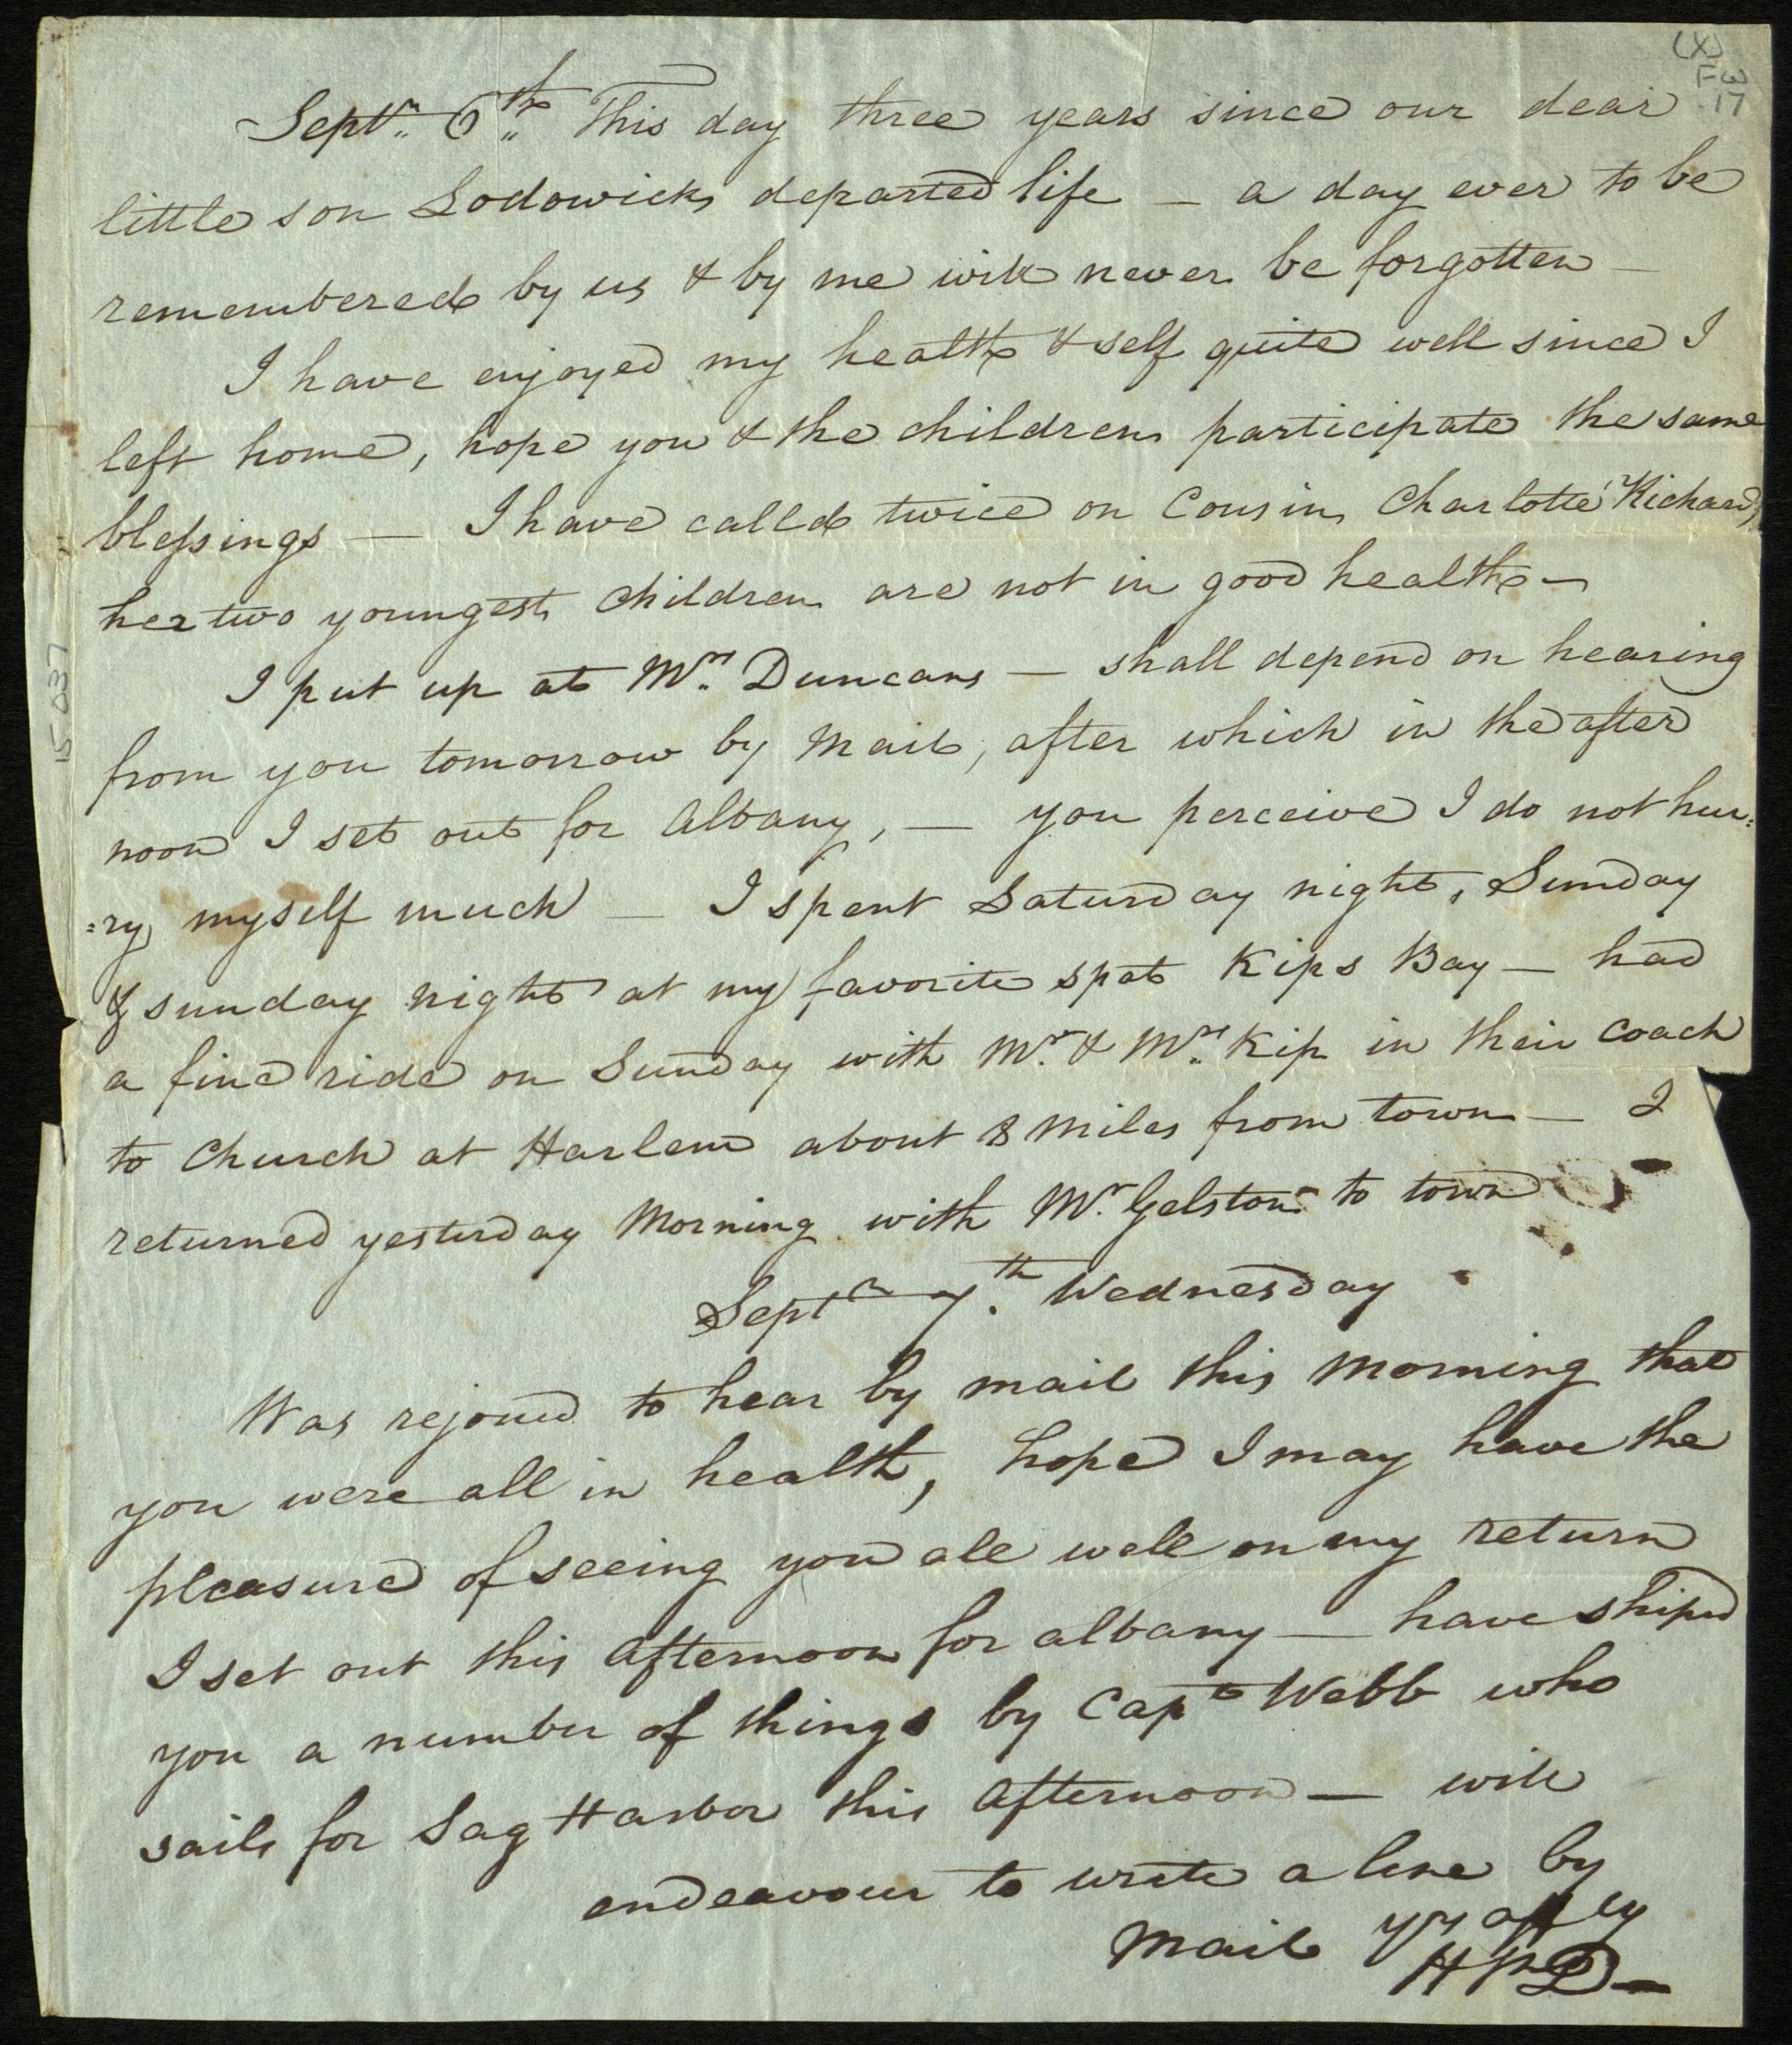 (X)
F3
17
Septr. 6th. This day three years since our dear
little son Lodowick departed life — a day ever to be
remembered by us & by me will never be forgotten —
I have enjoyed my health & self quite well since I
left home, hope you & the children participate the same
blessings — I have called twice on Cousin Charlotte Richards,
her two youngest children are not in good health —
I put up at Mrs. Duncans — shall depend on hearing
from you tomorrow by Mail, after which in the after
noon I set out for Albany, — you perceive I do not hur=
=ry myself much — I spent Saturday night, Sunday
& sunday night at my favorite spot Kips Bay — had
a fine ride on Sunday with Mr. & Mrs. Kip in their Coach
to Church at Harlem about 8 Miles from town — I
returned yesterday Morning with Mr. Gelston to town
Septr 7th. Wednesday
Was rejoiced to hear by mail this Morning that
you were all in health, hope I may have the
pleasure of seeing you all well on my return
I set out this afternoon for albany — have shiped
you a number of things by Capt Webb who
sails for Sag Harbor this afternoon — will
endeavour to write a line by
Mail yr affly
HPD —
15.037